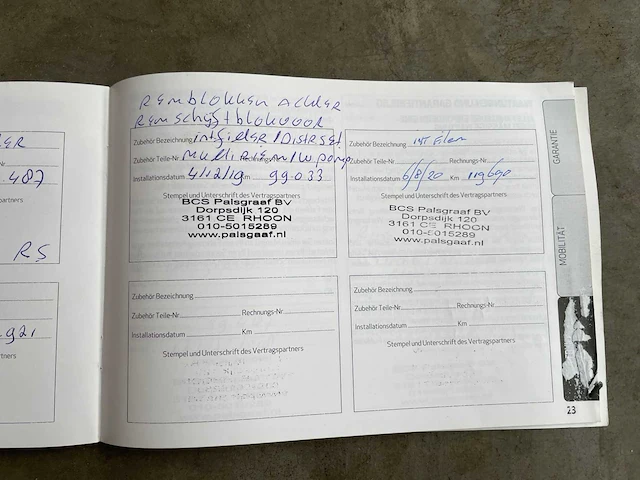 Remblokken Achter
Remschijf+blokvoor
Zubehör Bezeichnung intfilter/Distrset
Zubehör Teile-Nr. multiriem/wpomp
Installationsdatum 4/12/19 Km 99.033
Stempel und Unterschrift des Vertragspartners
BCS Palsgraaf BV
Dorpsdijk 120
3161 CE RHOON
010-5015289
www.palsgaaf.nl
Zubehör Bezeichnung int filter
Zubehör Teile-Nr. Rechnungs-Nr.
Installationsdatum 6/8/20 Km 119690
Stempel und Unterschrift des Vertragspartners
BCS Palsgraaf BV
Dorpsdijk 120
3161 CE RHOON
010-5015289
www.palsgaaf.nl
Zubehör Bezeichnung
Zubehör Teile-Nr. Rechnungs-Nr.
Installationsdatum Km
Stempel und Unterschrift des Vertragspartners
Zubehör Bezeichnung
Zubehör Teile-Nr. Rechnungs-Nr.
Installationsdatum Km
Stempel und Unterschrift des Vertragspartners
.487
RS
.921
GARANTIE
MOBILITÄT
23